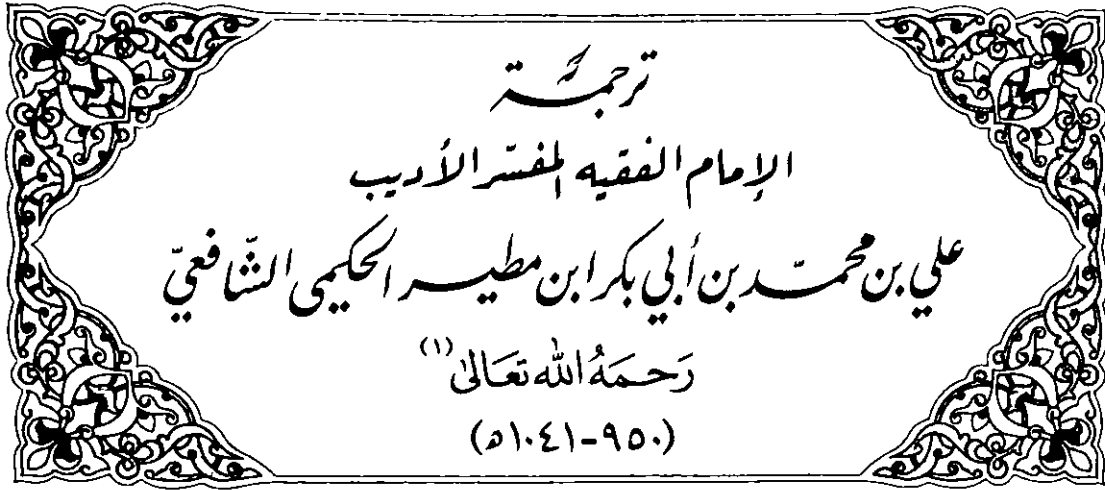 ترجمة
الإمام الفقيه المفسّر الأديب
علي بن محمّد بن أبي بكر ابن مطير الحكيمي الشّافعيّ
رَحِمَهُ الله تَعَالىٰ (١)
(٩٥٠-١٠٤١هـ)